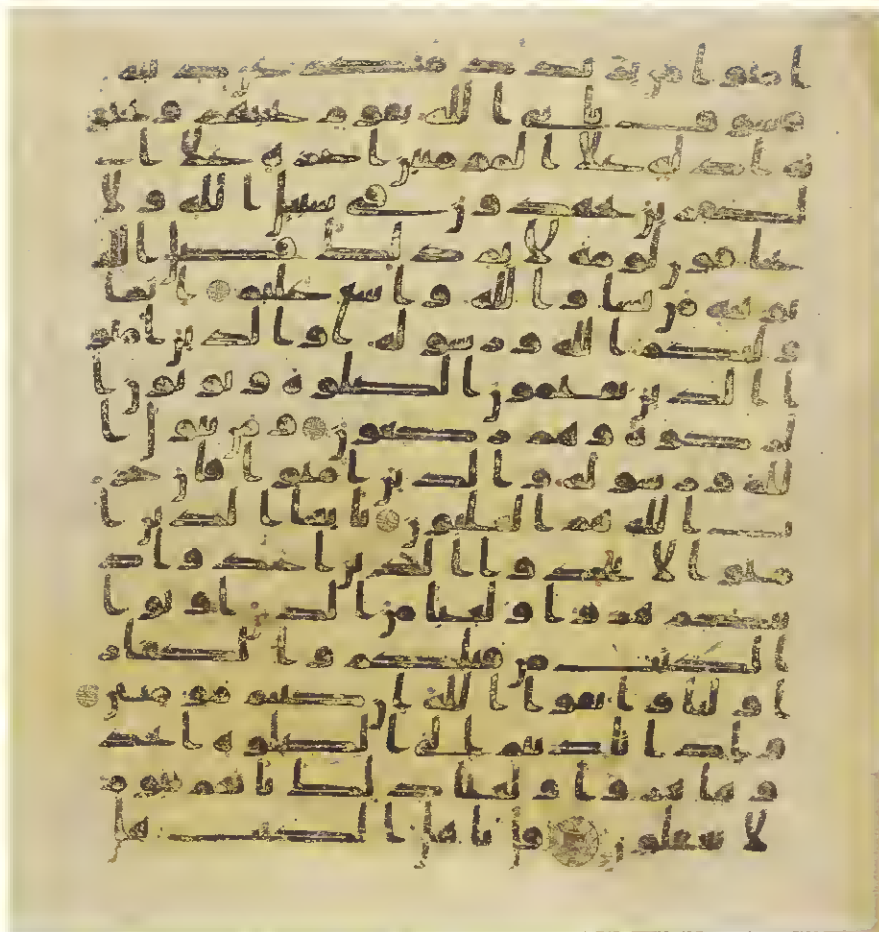 امنوا من يرتد منكم عن دينه
فسوف ياتي الله بقوم يحبهم ويحبو
نه اذلة على المومنين اعزة على ا
لكفرين يجهدون في سبيل الله ولا
يخافون لومة لايم ذلك فضل الله
يوتيه من يشا والله واسع عليم انما
وليكم الله ورسوله والذين امنو
ا الذين يقيمون الصلوة ويوتون ا
لزكوة وهم ركعون ومن يتول ا
لله ورسوله والذين امنوا فان حز
ب الله هم الغلبون يايها الذين ا
منوا لا تتخذوا الذين اتخذوا د
ينكم هزوا ولعبا من الذين اوتوا
الكتب من قبلكم والكفار
اوليا واتقوا الله ان كنتم مومنين
واذا ناديتم الى الصلوة اتخذ
وها هزوا ولعبا ذلك بانهم قوم
لا يعقلون قل ياهل الكتب هل